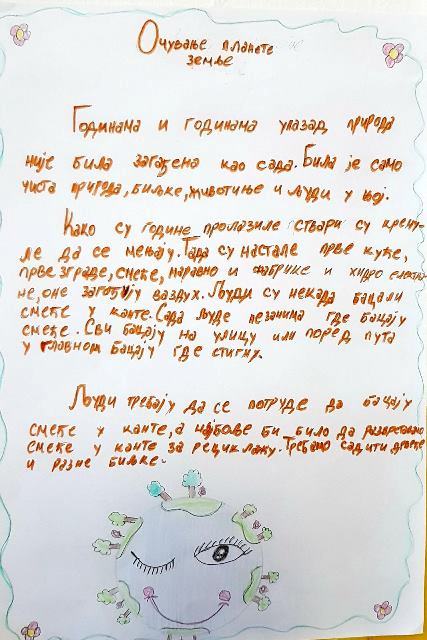 Очување планете
земље
Годинама и годинама уназад природа
није била загађена као сада. Била је само
чиста природа, биљке, животиње и људи у њој.
Како су године пролазиле ствари су крену-
ле да се мењају. Тада су настале прве куће,
прве зграде, смеће, наравно и фабрике и хидро електра-
не, оне загађују ваздух. Људи су некада бацали
смеће у канте. Сада људе незанима где бацају
смеће. Сви бацају на улицу или поред пута
у главном бацају где стигну.
Људи требају да се потруде да бацају
смеће у канте, а најбоље би било да разврставамо
смеће у канте за рециклажу. Требамо садити дрвеће
и разне биљке.